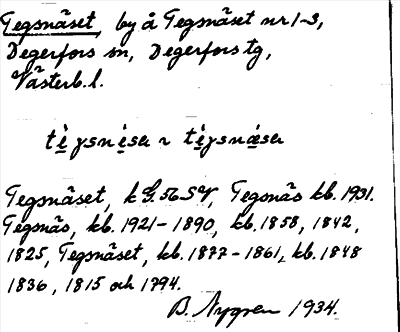 Tegsnäset, by å Tegsnäset nr 1-3,
Degerfors sn, Degerfors tg,
Västerb. l.
Tegsnäset, k G. 56 SV, Tegsnäs kb. 1931.
Tegsnäs, kb. 1921-1890, kb. 1858, 1842,
1825, Tegsnäset, kb. 1877-1861, kb. 1848
1836, 1815 och 1794.
B. Nygren 1934.